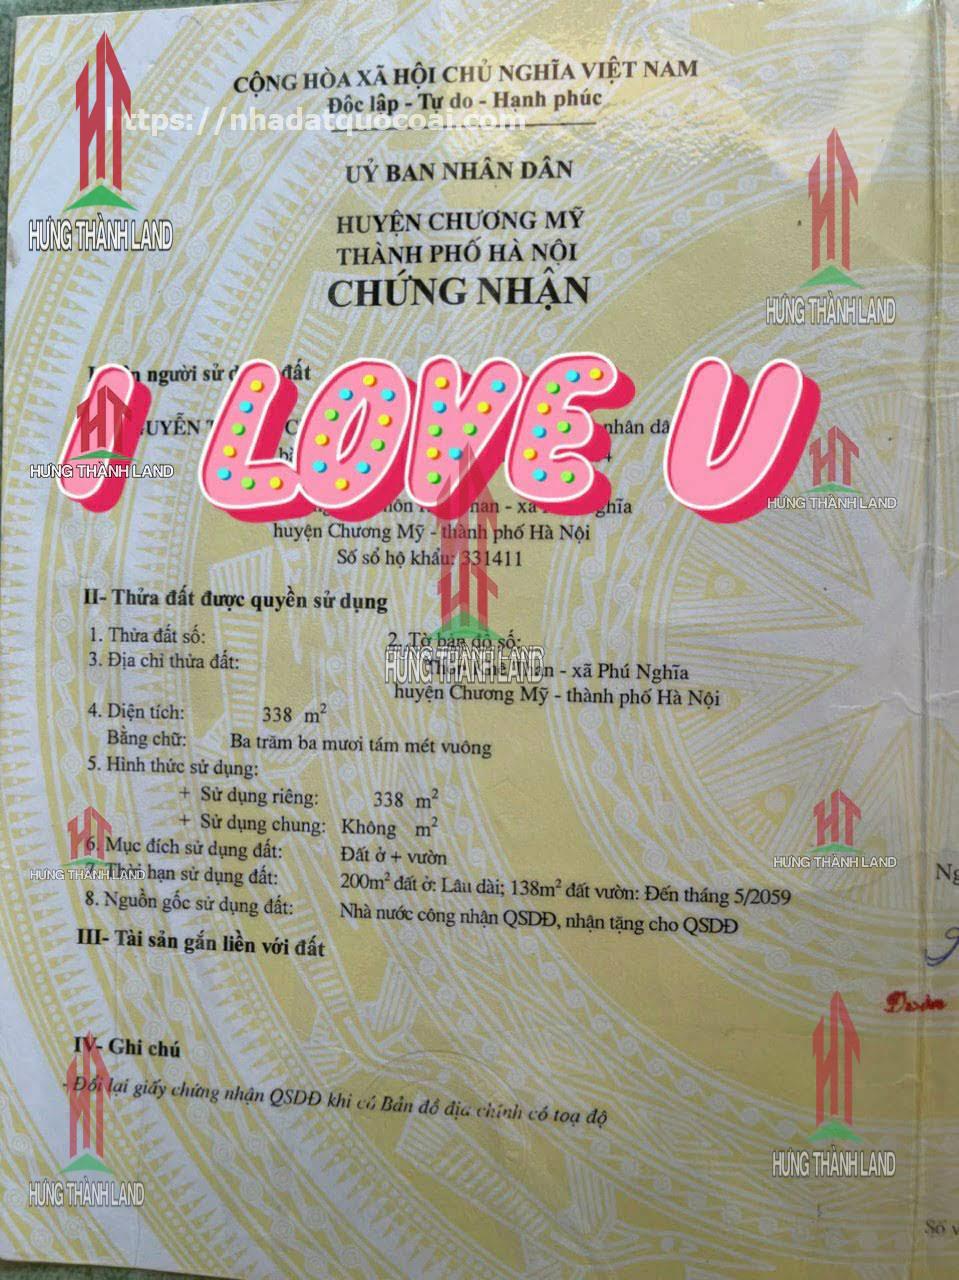 CỘNG HÒA XÃ HỘI CHỦ NGHĨA VIỆT NAM
Độc lập - Tự do - Hạnh phúc
https://nhadatquocoai.com
UỶ BAN NHÂN DÂN
HUYỆN CHƯƠNG MỸ
THÀNH PHỐ HÀ NỘI
CHỨNG NHẬN
HƯNG THÀNH LAND
HƯNG THÀNH LAND
người sử đất
I LOVE U
nhân
HƯNG THÀNH LAND
HƯNG THÀNH LAND
huyện Chương Mỹ - thành phố Hà Nội
Số sổ hộ khẩu: 331411
II- Thửa đất được quyền sử dụng
1. Thửa đất số: 2. Tờ bản đồ số:
3. Địa chỉ thửa đất: - xã Phú Nghĩa
HƯNG THÀNH LAND
huyện Chương Mỹ - thành phố Hà Nội
4. Diện tích: 338 m²
Bằng chữ: Ba trăm ba mươi tám mét vuông
5. Hình thức sử dụng:
+ Sử dụng riêng: 338 m²
+ Sử dụng chung: Không m²
6. Mục đích sử dụng đất: Đất ở + vườn
7. Thời hạn sử dụng đất: 200m² đất ở: Lâu dài; 138m² đất vườn: Đến tháng 5/2059
HƯNG THÀNH LAND
HƯNG THÀNH LAND
8. Nguồn gốc sử dụng đất: Nhà nước công nhận QSDĐ, nhận tặng cho QSDĐ
III- Tài sản gắn liền với đất
IV- Ghi chú
- Đổi lại giấy chứng nhận QSDĐ khi có Bản đồ địa chính có toạ độ
HƯNG THÀNH LAND
HƯNG THÀNH LAND
Số